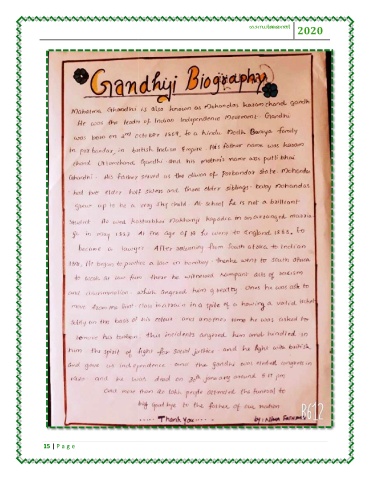 2020
Gandhiji Biography
Mahatma Ghandhi is also known as Mohandas karamchand gandhi
He was the leader of Indian Independence Movement. Gandhi
was born on 2nd october 1869, to a hindu Modh Baniya family
in porbandar, in british Indian Empire His father name was karam
chand Uttamchand Gandhi and his mother's name was putli bhai
Gandhi. His father served as the diwan of Porbandar State. Mohandas
had two elder half sisters and three elder siblings. baby Mohandas
grew up to be a very shy child. At school he is not a brilliant
student. He was kasturbai Makhanji kapadia in an arranged marria
ge in may 1883 At the age of 18 he went to England 1888, to
become a lawyer. After returning from South africa to Indian
He began to practice a law in bombay. went to south africa
to work at law firm there he witnessed rampant acts of racism
and discrimination which angered him greatly. Once he was ask to
move from the first class in a train in a spite of a having a valid ticket
solely on the basis of his colour and another time he was asked to
remove his turban. this incidents angered him and kindled in
him the spirit of fight for social justice. and he fight with british
and gave us independence. once the gandhi was
and he was dead on 30th january around 5:17 pm
and more than people attended the funeral to
big goodbye to the father of our nation
Thank you
by:
R612
15 | Page